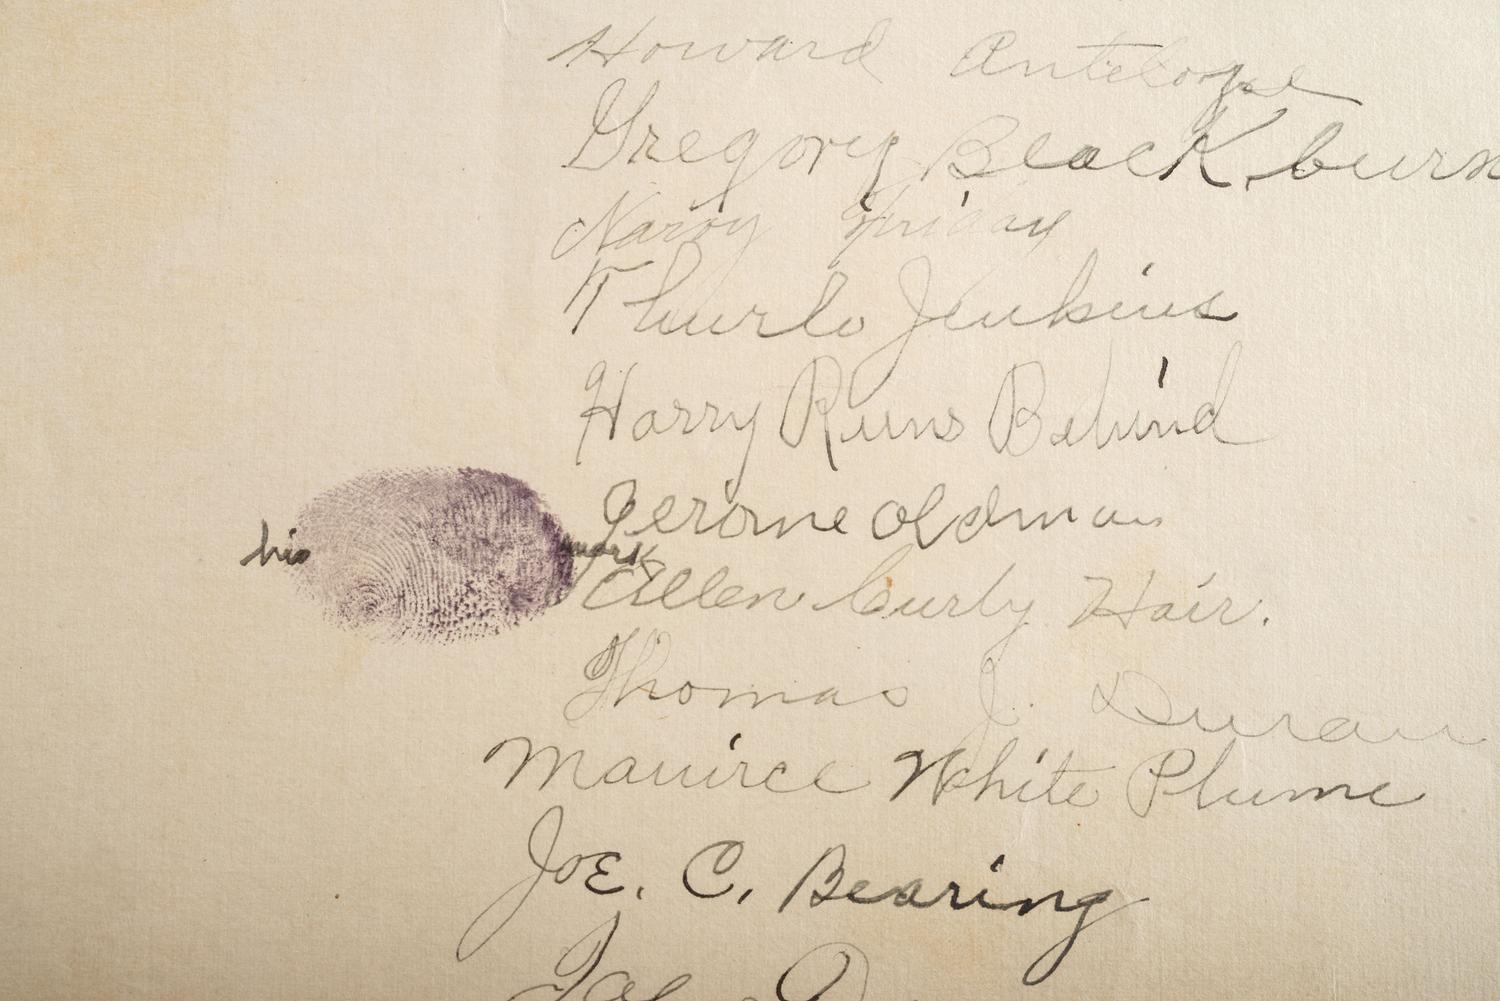 Howard Antelope
Gregory Black burn
Friday
Thurlo Jenkins
Harry Runs Behind
Jerome oldman
his mark
Allen Curly Hair.
Thomas J. Duran
Mauirce White Plume
JoE. C. Bearing